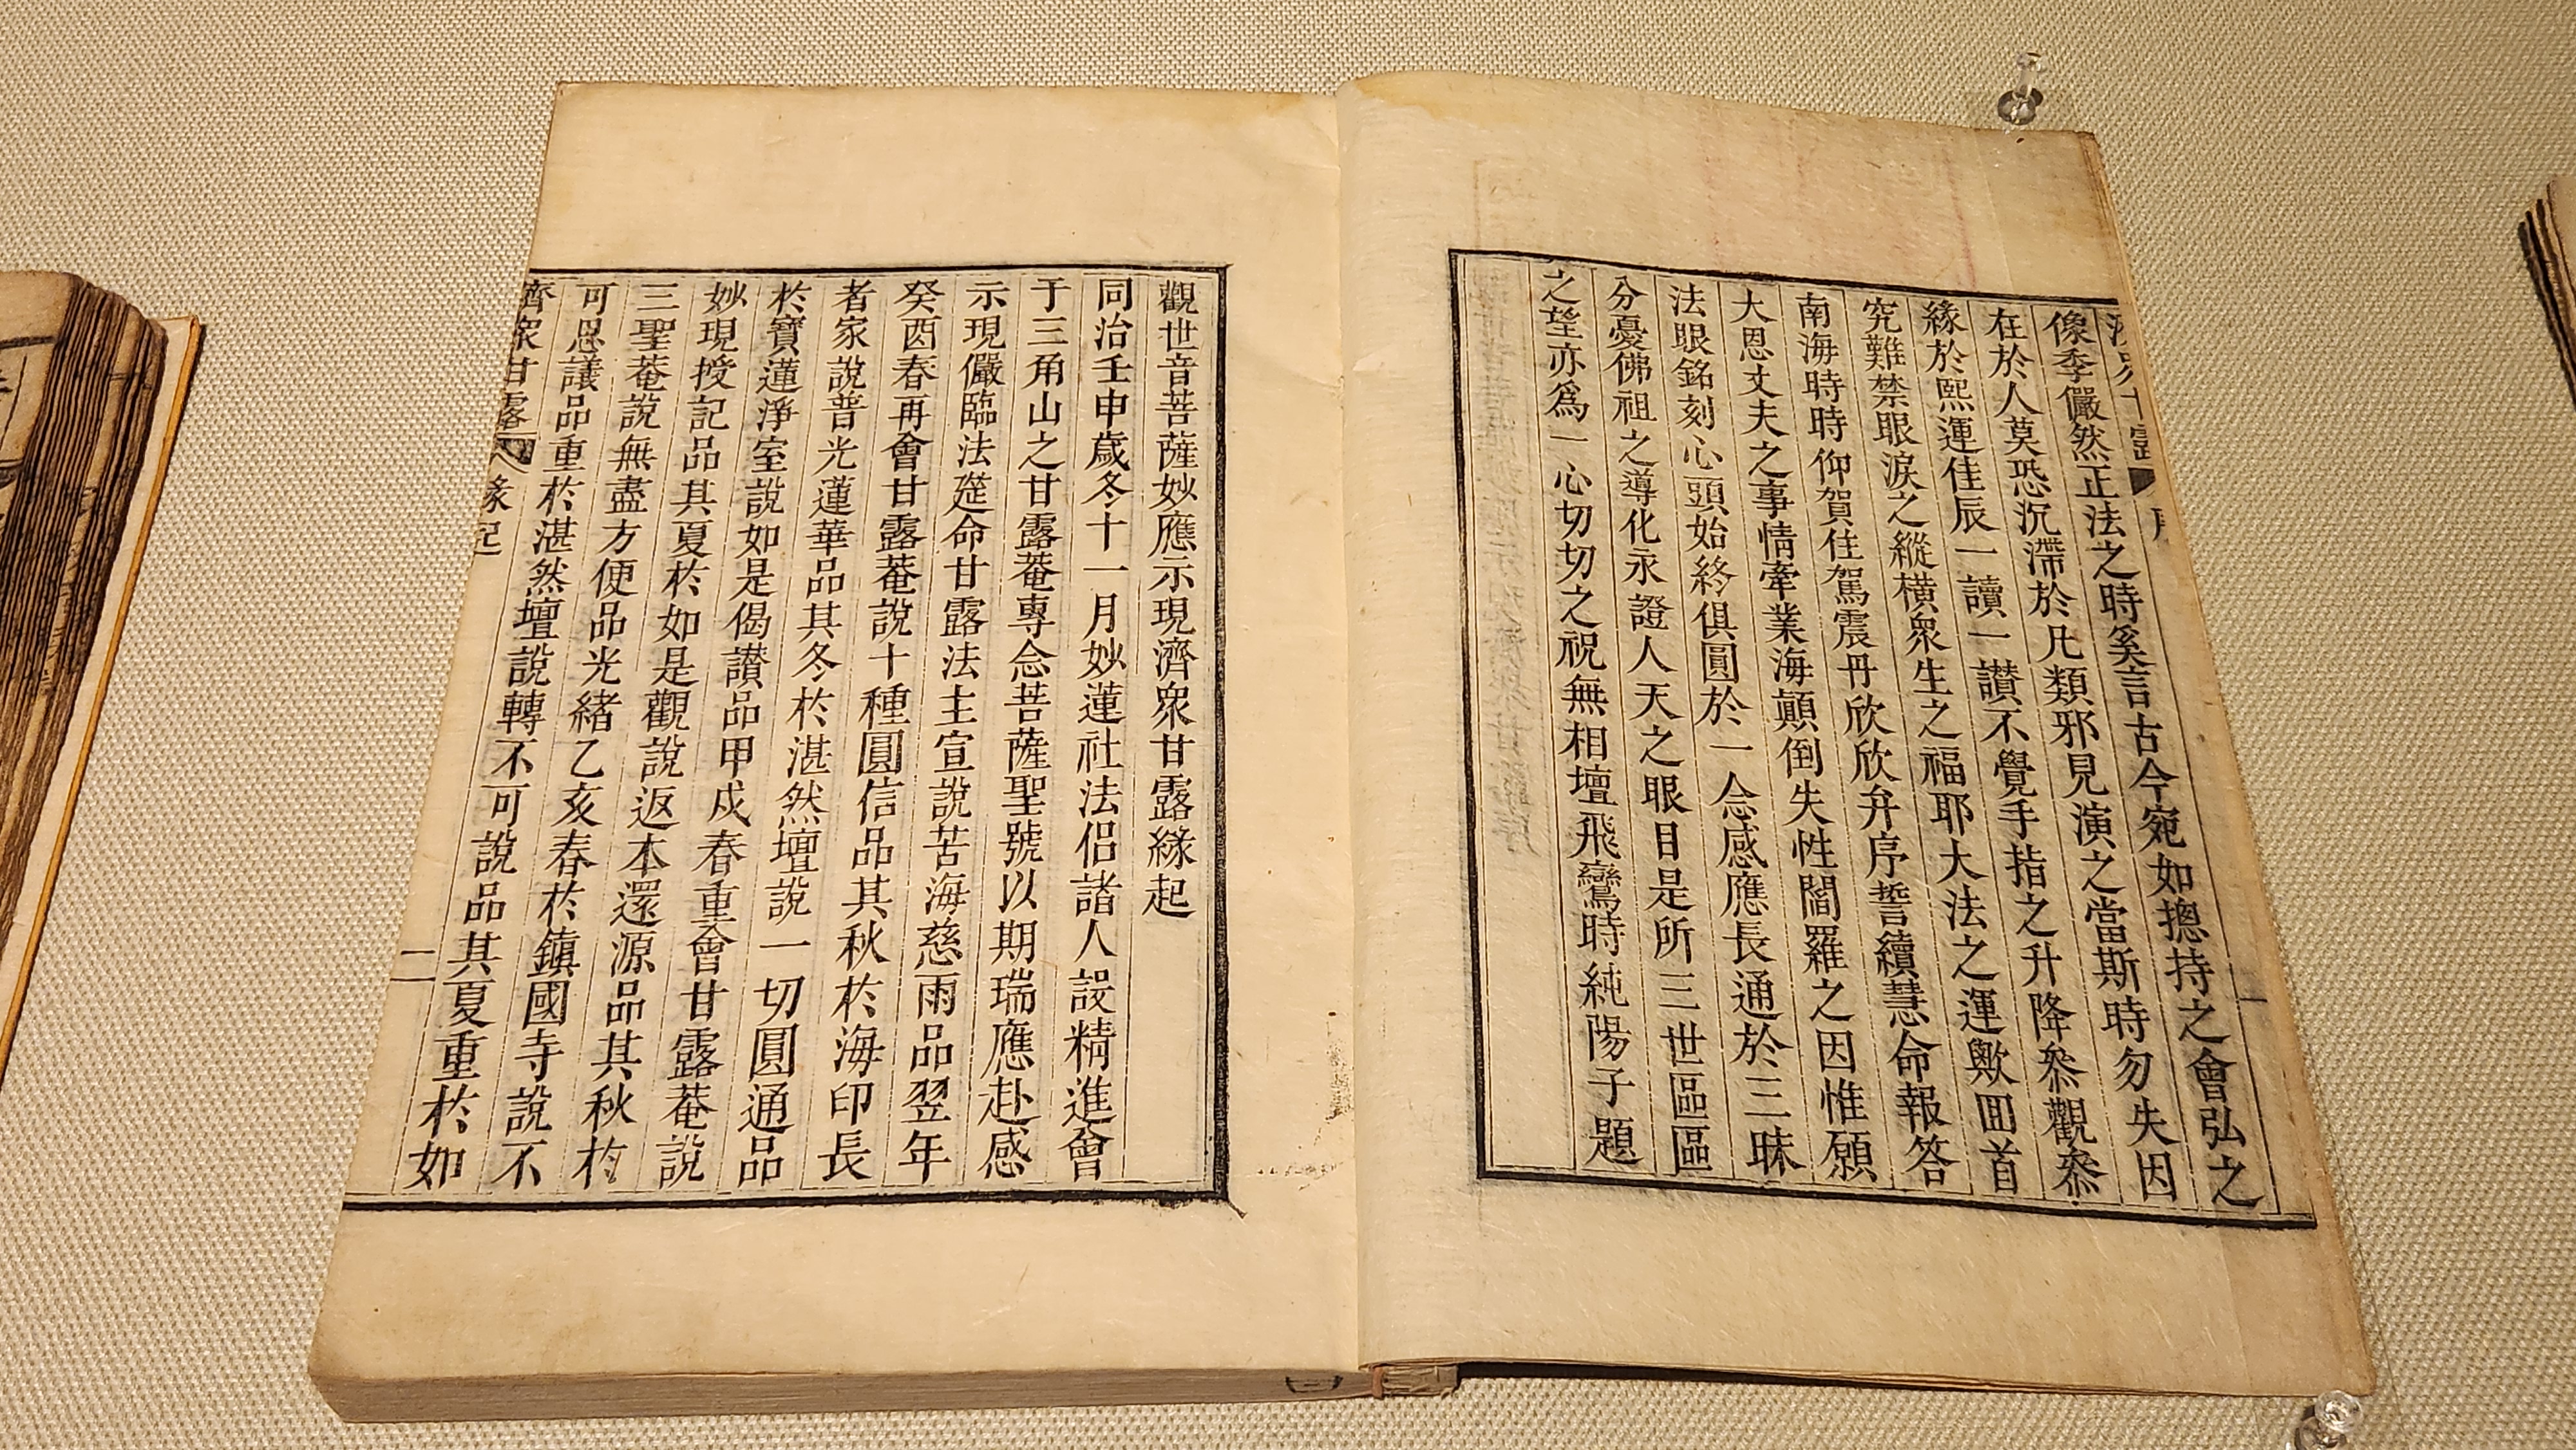 像季儼然正法之時奚言古今宛如摠持之會弘之
在於人莫恐沉滯於凡類邪見演之當斯時勿失因
緣於熙運佳辰一讀一讚不覺手指之升降叅觀叅
究難禁眼淚之縱橫衆生之福耶大法之運歟囬首
南海時時仰賀住駕震丹欣欣弁序誓續慧命報答
大恩丈夫之事情牽業海顚倒失性閻羅之因惟願
法眼銘刻心頭始終俱圓於一念感應長通於三昧
分憂佛祖之導化永證人天之眼目是所三世區區
之望亦爲一心切切之祝無相壇飛鸞時純陽子題
觀世音菩薩妙應示現濟衆甘露緣起
同治壬申歲冬十一月妙蓮社法侶諸人設精進會
于三角山之甘露菴專念菩薩聖號以期瑞應赴感
示現儼臨法筵命甘露法主宣說苦海慈雨品翌年
癸酉春再會甘露菴說十種圓信品其秋於海印長
者家說普光蓮華品其冬於湛然壇說一切圓通品
於寶蓮淨室說如是偈讚品甲戌春重會甘露菴說
妙現授記品其夏於如是觀說返本還源品其秋於
三聖菴說無盡方便品光緖乙亥春於鎭國寺說不
可思議品重於湛然壇說轉不可說品其夏重於如
濟衆甘露 緣起 二